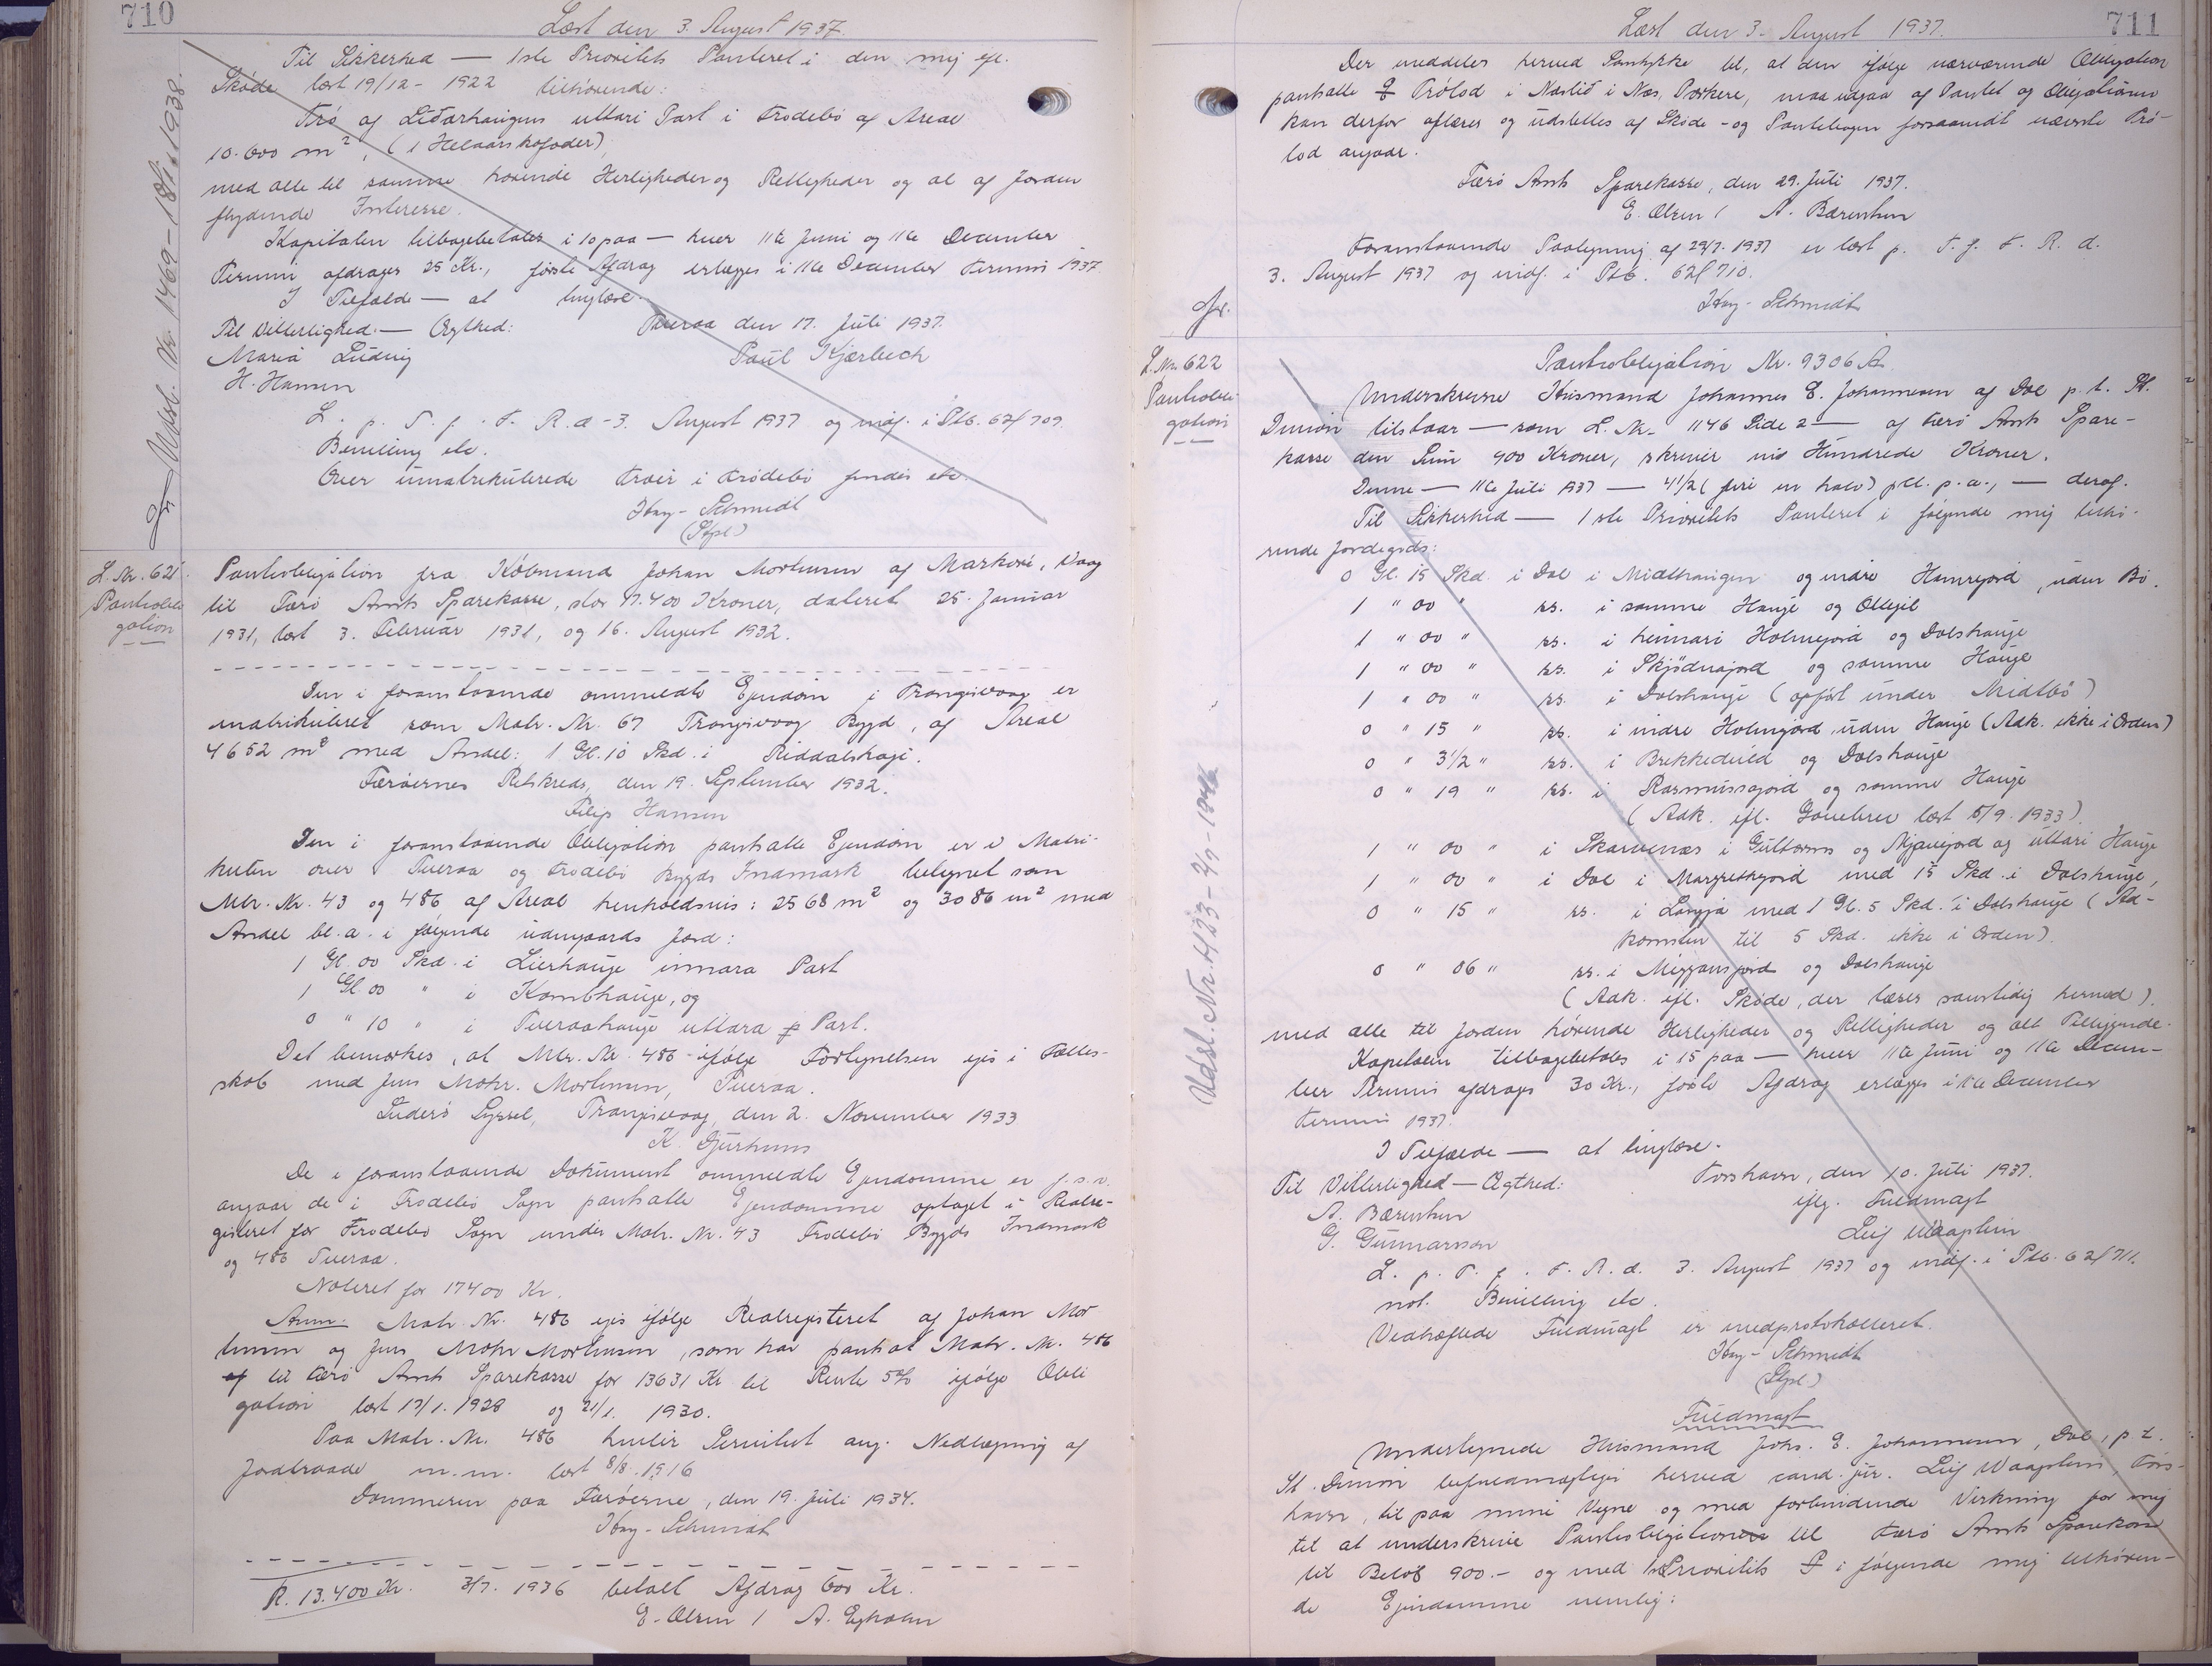 710
Læst den 3. August 1937.
Til Sikkerhed — 1ste Prioritets Panteret i den mig efl.
Skøde læst 19/12 - 1922 tilhørende:
Trø af Lidarhaugens uttari Part i Frodebø af Areal
10.600 m², (1 Helaarskofoder)
med alle til samme hørende Herligheder og Rettigheder og al af Jorden
flydende Interesse.
Kapitalen tilbagebetales i 10 paa — hver 11te Juni og 11te December
Termin afdrages 25 Kr., første Afdrag erlægges i 11te December Termin 1937.
I Tilfælde — at tinglæse.
Til Vitterlighed — Ægthed: Tveraa den 17. Juli 1937.
Maria Ludvig Paul Kjærbech
H. Hansen
L. p. T. f. F. R. d. 3. August 1937 og indf. i Ptb. 62/709.
Bevilling etc.
Over umatrikulerede Trøir i Frodebø findes etc.
Hoy-Schmidt
(Stpl)
Udsl. Nr. 1469 - 18/11 1938.
L. Nr. 621.
Pantobli-
gation
Pantobligation fra Købmand Johan Mortensen af Markoni, Vaag
til Færø Amts Sparekasse, stor 17.400 Kroner, dateret 25. Januar
1931, læst 3. Februar 1931, og 16. August 1932.
Den i foranstaaende ommeldte Ejendom i Trangisvaag er
matrikuleret som Matr. Nr. 67 Trangisvaag Bygd, af Areal
4652 m² med Andel: 1 Gl. 10 Skd. i Riddalshaji.
Færøernes Retskreds, den 19. September 1932.
Filip Hansen
Den i foranstaaende Obligation pantsatte Ejendom er i Matri-
kulen over Tveraa og Frodebø Bygds Indmark betegnet som
Mtr. Nr. 43 og 486 af Areal henholdsvis: 2568 m² og 3086 m² med
Andel bl. a. i følgende udengaards Jord:
1 Gl. 00 Skd. i Lierhauge innara Part
1 Gl. 00 " i Kambhauge, og
0 " 10 " i Tveraahauge uttara Part.
Det bemærkes, at Mtr. Nr. 486 ifølge Forlydelsen ejes i Fælles-
skab med Jens Mohr. Mortensen, Tveraa.
Suderø Syssel, Trangisvaag, den 2. November 1933
K. Djurhuus
De i foranstaaende Dokument ommeldte Ejendomme er f.s.v.
angaar de i Frodebø Sogn pantsatte Ejendomme optaget i Realre-
gisteret for Frodebø Sogn under Matr. Nr. 43 Frodebø Bygds Indmark
og 486 Tveraa.
Noteret for 17400 Kr.
Anm. Matr. Nr. 486 ejes ifølge Realregisteret af Johan Mor-
tensen og Jens Mohr Mortensen, som har pantsat Matr. Nr. 486
til Færø Amts Sparekasse for 13631 Kr til Rente 5% ifølge Obli
gation læst 17/1. 1928 og 21/1. 1930.
Paa Matr. Nr. 486 hviler Servitut ang. Nedlægning af
Jordtraade m.m. læst 8/8. 1916
Dommeren paa Færøerne, den 19. Juli 1934.
Hoy-Schmidt
R. 13.400 Kr. 3/7. 1936 betalt Afdrag 600 Kr.
E. Olsen / A. Egholm
Læst den 3. August 1937.
711
Der meddeles herved Samtykke til, at den ifølge nærværende Obligation
pantsatte Trølod i Næslid i Næs, Porkere, maa udgaa af Pantet og Obligationen
kan derfor aflæses og udslettes af Skøde- og Pantebogen forsaavidt nævnte Trø-
lod angaar.
Færø Amts Sparekasse, den 29. Juli 1937.
E. Olsen / A. Bærentsen
Foranstaaende Paategning af 29/7. 1937 er læst p. T. f. F. R. d.
3. August 1937 og indf. i Ptb. 62/710.
Hoy-Schmidt
L. Nr. 622
Pantobli-
gation
Pantobligation Nr. 9306 A.
Underskrevne Husmand Johannes E. Johannesen af Dal p.t. St.
Dimon tilstaar — som L. Nr. 1146 Side 2 — af Færø Amts Spare-
kasse den Sum 900 Kroner, skriver ni Hundrede Kroner.
Denne — 11te Juli 1937 — 4 1/2 (fire en halv) pCt. p.a., — deraf.
Til Sikkerhed — 1ste Prioritets Panteret i følgende mig tilhø-
rende Jordegods:
0 Gl. 15 Skd. i Dal i Midlhaugen og indre Hamrejord, uden Bø.
1 " 00 " ss. i samme Hauge og
1 " 00 " ss. i heimari Holmejord og Dalshauge
1 " 00 " ss. i Skjødnajord og samme Hauge
1 " 00 " ss. i Dalshauge (opført under Midtbø)
0 " 15 " ss. i indre Holmejord uden Hauge (Adk. ikke i Orden)
0 " 3 1/2 " ss. i Brekkedeild og Dalshauge
0 " 19 " ss. i Rasmussajord og samme Hauge
(Adk. ifl. Gavebrev læst 5/9. 1933).
1 " 00 " i Skarvenæs i Guttorms og Mjavejord og uttari Hauge
1 " 00 " i Dal i Margrethejord med 15 Skd. i Dalshauge,
0 " 15 " ss. i Langjá med 1 Gl. 5 Skd. i Dalshauge (Ad-
komsten til 5 Skd. ikke i Orden).
0 " 06 " ss. i Miggansjord og Dalshauge
(Adk. ifl. Skøde, der læses samtidig hermed).
med alle til Jorden hørende Herligheder og Rettigheder og alt Tilliggende.
Kapitalen tilbagebetales i 15 paa — hver 11te Juni og 11te Decem-
ber Termin afdrages 30 Kr., første Afdrag erlægges i 11te December
Termin 1937.
I Tilfælde — at tinglæse.
Til Vitterlighed — Ægthed: Torshavn, den 10. Juli 1937.
A. Bærentsen iflg. Fuldmagt
G. Gunnarsson Leif Waagstein
L. p. T. f. F. R. d. 3. August 1937 og indf. i Ptb. 62/711.
not. Bevilling etc.
Vedhæftede Fuldmagt er medprotokolleret.
Hoy-Schmidt
(Stpl.)
Udsl. Nr. 1433 - 2/9 - 1946
Fuldmagt
Undertegnede Husmand Johs. E. Johannesen, Dal, p.t.
St. Dimon befuldmægtiger herved cand. jur. Leif Waagstein, Tors-
havn, til paa mine Vegne og med forbindende Virkning for mig
til at underskrive Pantobligationen til Færø Amts Sparekasse
til Beløb 900.- og med 1. Prioritets P i følgende mig tilhøren-
de Ejendomme nemlig: